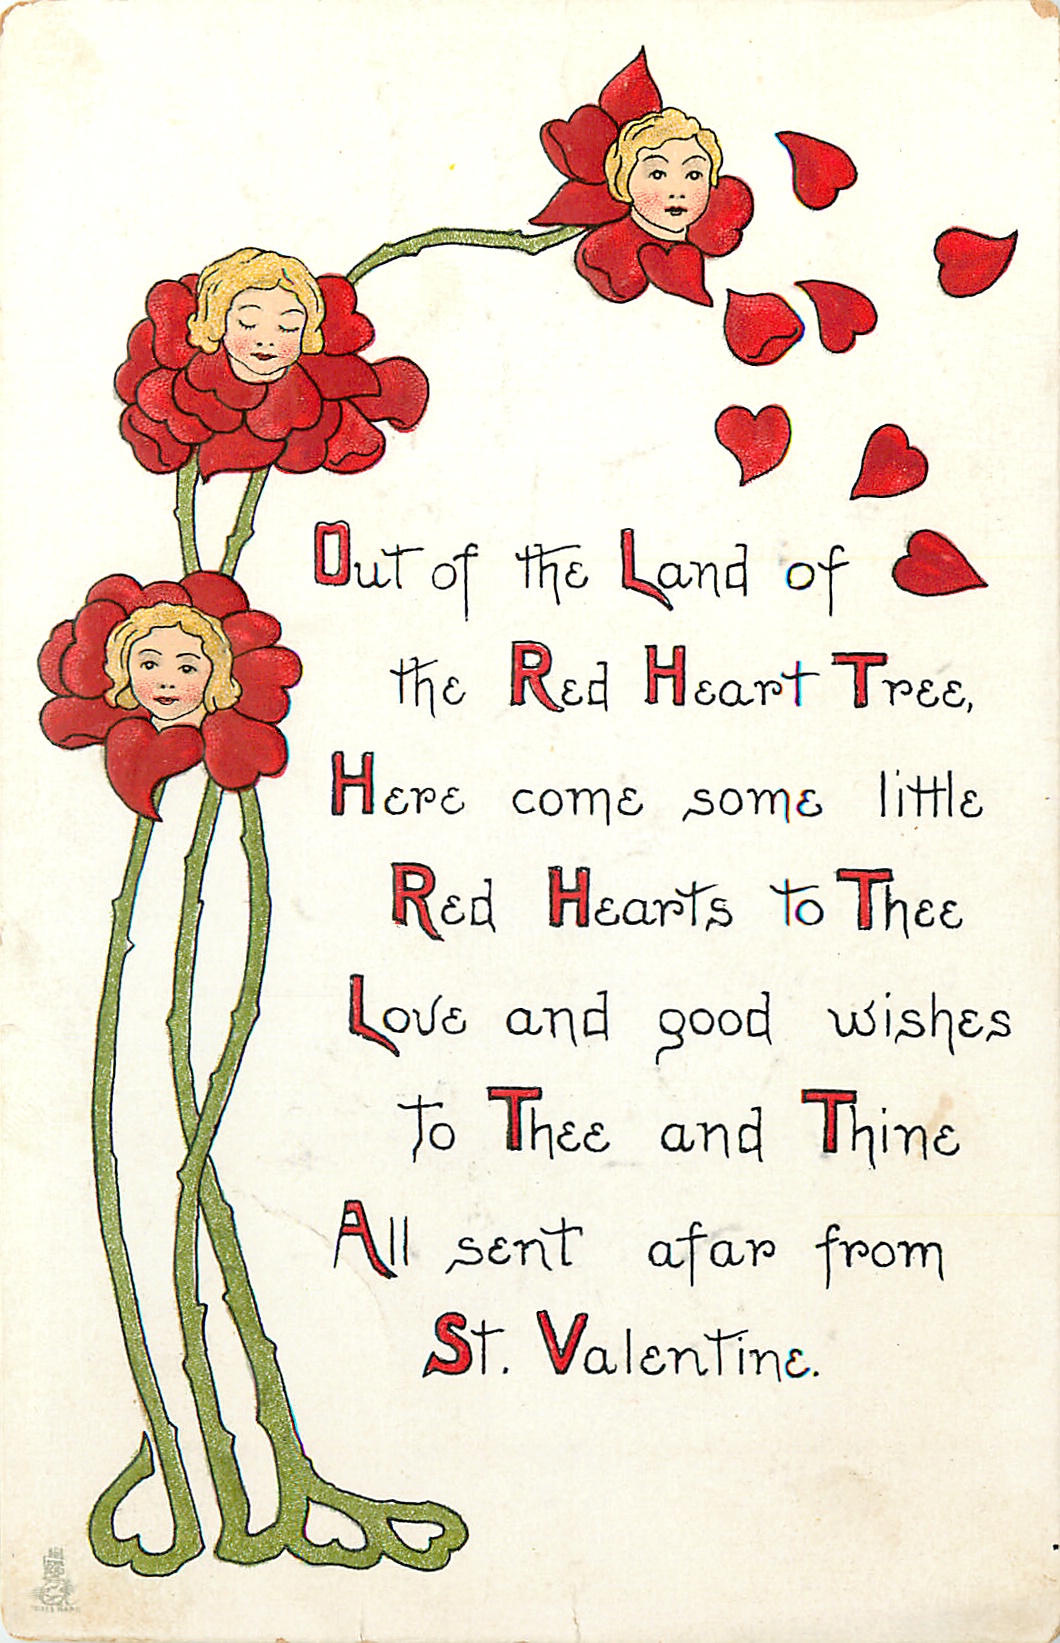 Out of the Land of
the Red Heart Tree,
Here come some little
Red Hearts to Thee
Love and good wishes
to Thee and Thine
All sent afar from
St. Valentine.